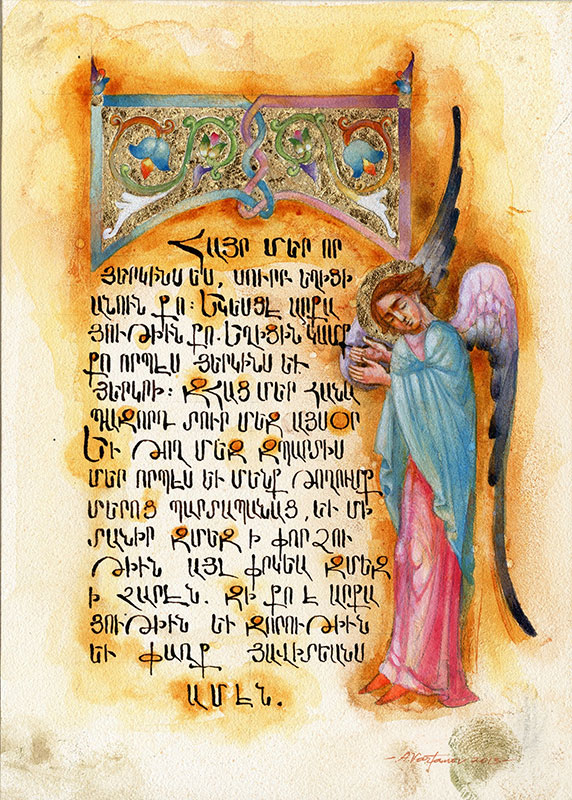 Հայր մեր որ
յերկինս ես, սուրբ եղիցի
անուն քո։ Եկեսցէ արքա
յութիւն քո. Եղիցին կամք
քո որպէս յերկինս եւ
յերկրի։ Զհաց մեր հանա
պազորդ տուր մեզ այսօր
Եւ թող մեզ զպարտիս
մեր որպէս եւ մենք թողումք
մերոց պարտապանաց, եւ մի
տանիր զմեզ ի փորձու
թիւն այլ փրկեա զմեզ
ի չարէն. զի քո է արքա
յութիւն եւ զօրութիւն
եւ փառք յաւիտեանս
ամէն.
2015